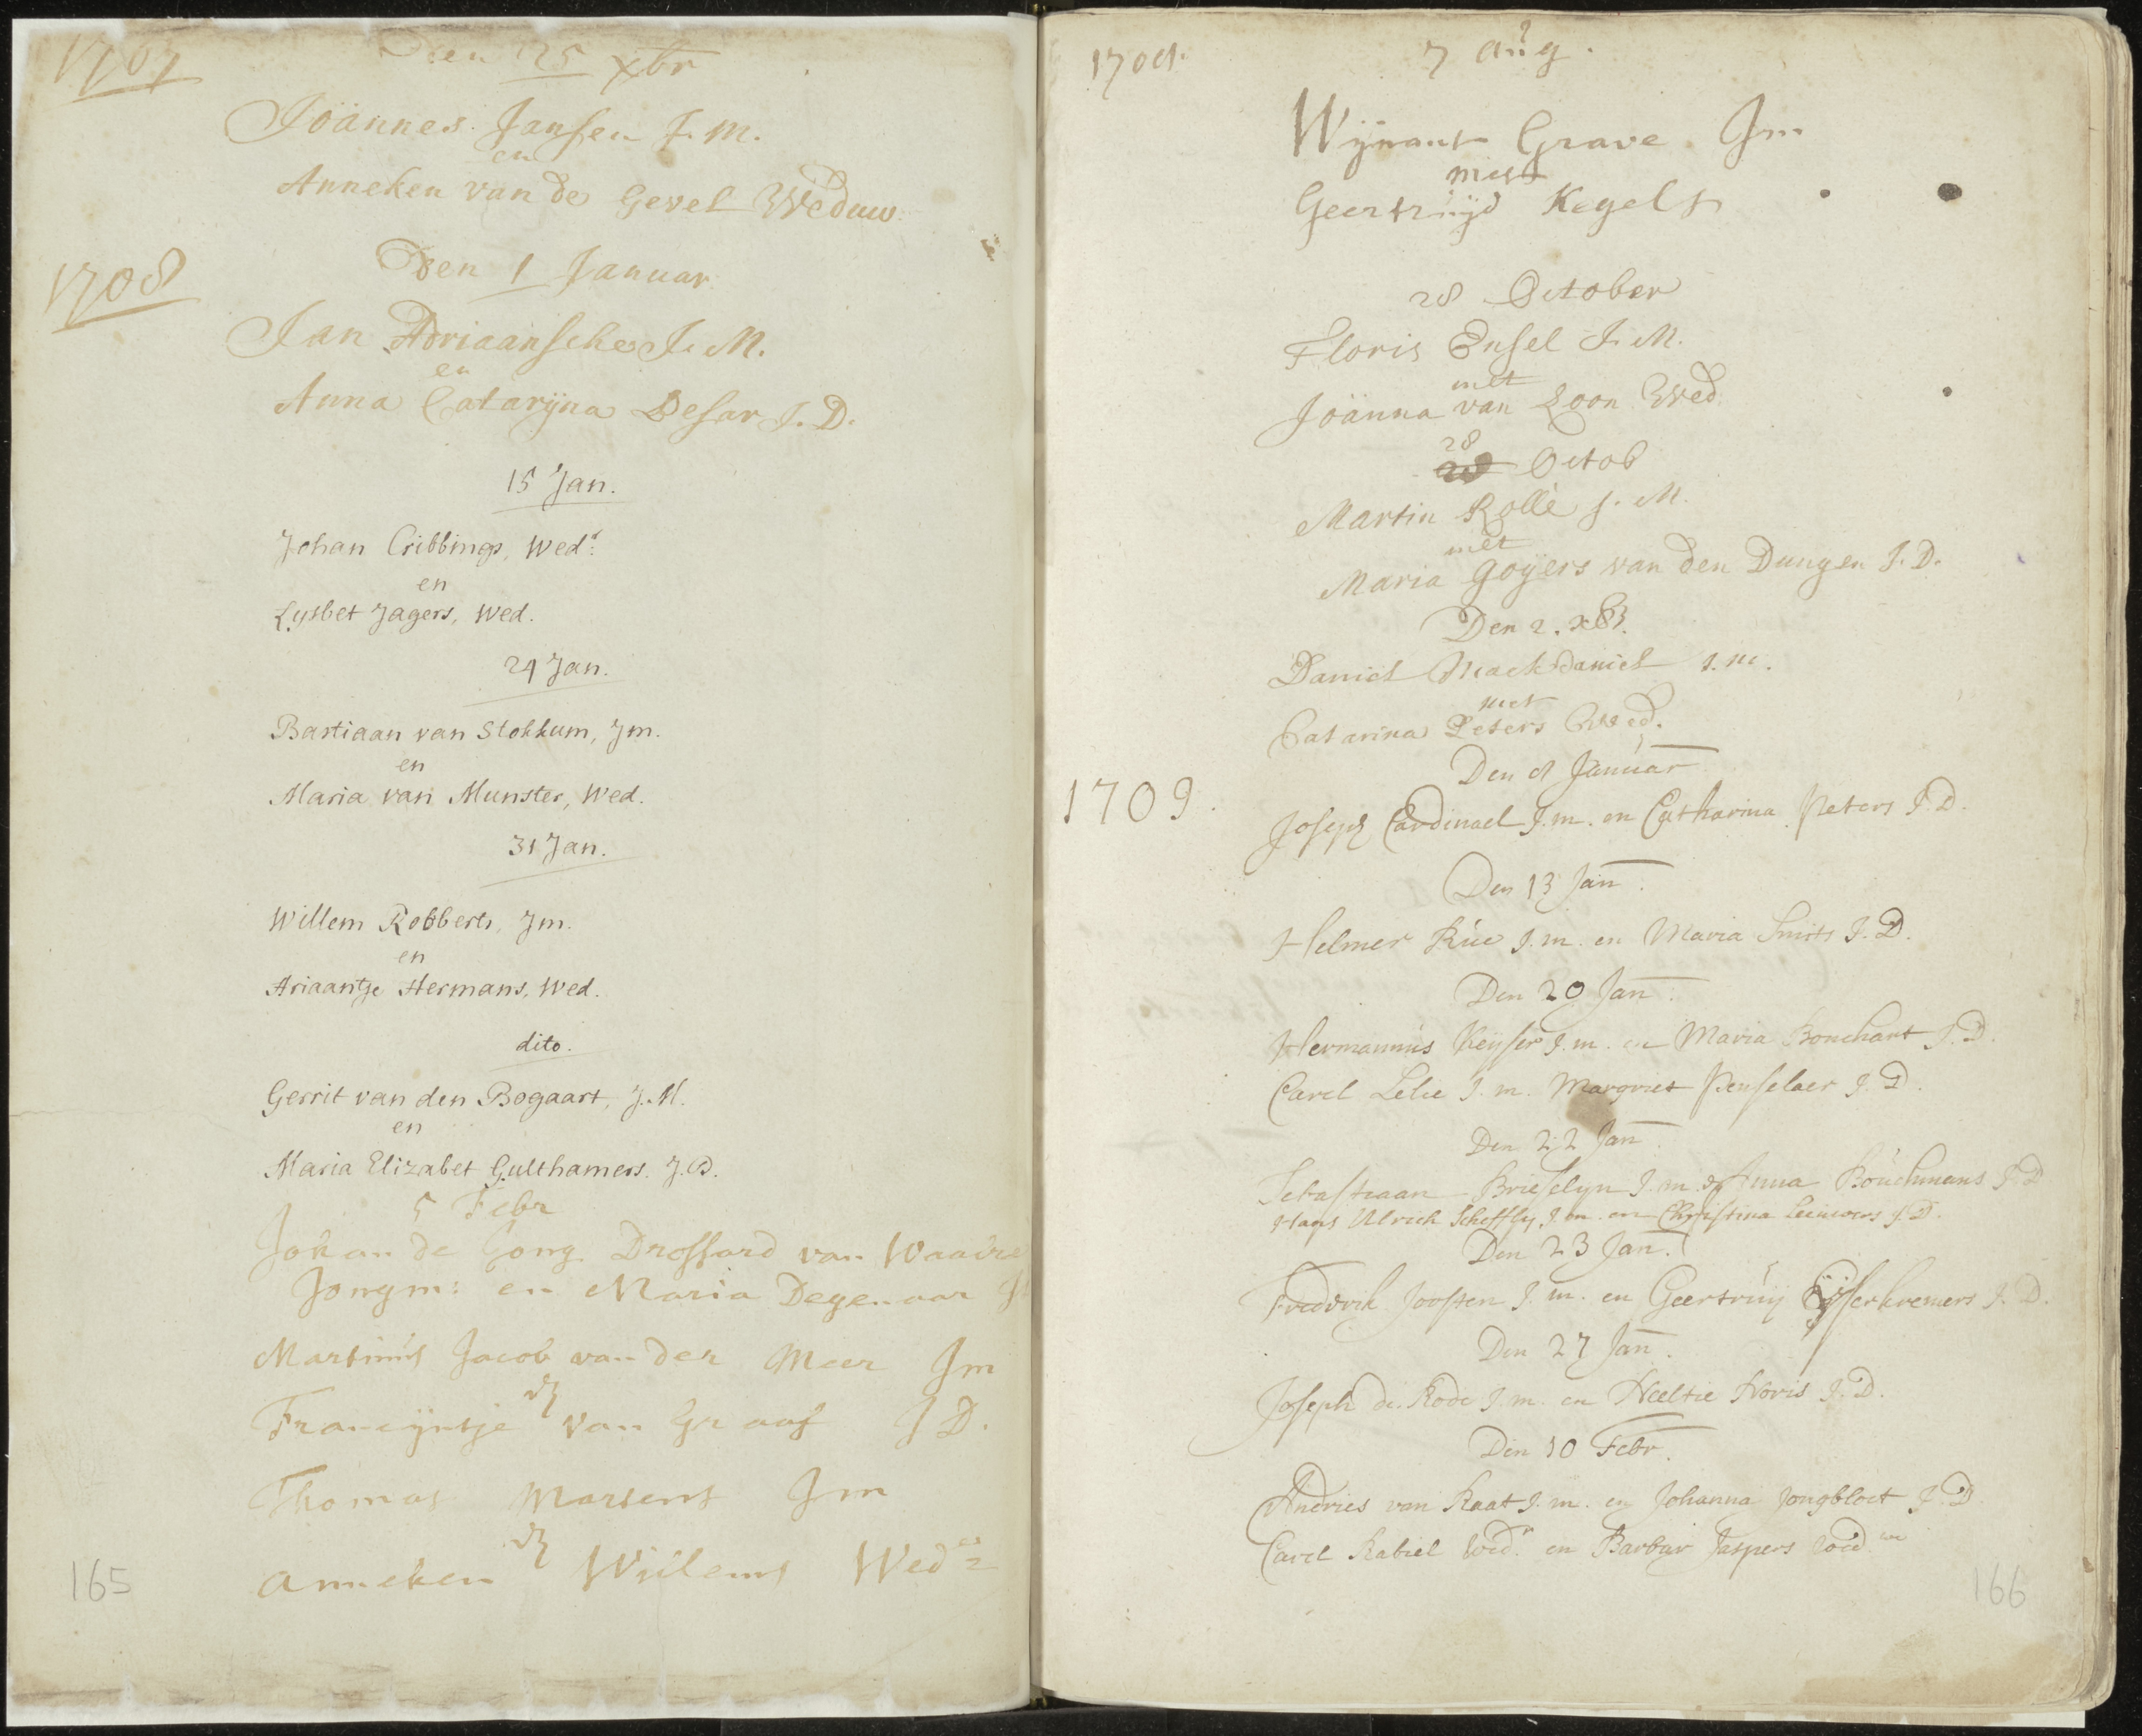 1707
Den 25 xbr
Joännes Jansen J. M.
en
Anneken van de Gevel Weduw
1708
Den 1 Januar
Jan Adriaansche J. M.
en
Anna Catarÿna Desar J. D.
15 Jan.
Johan Cribbings, Wedr:
en
Lysbet Jagers, Wed.
24 Jan.
Bastiaan van Stokkum, Jm.
en
Maria van Munster, Wed.
31 Jan.
Willem Robberts, Jm.
en
Ariaantje Hermans, Wed.
dito.
Gerrit van den Bogaart, J. M.
en
Maria Elizabet Gulthamers. J. D.
5 Febr
Johan de Jong Drossard van Waadre
Jongm: en Maria Degenaar
Martinús Jacob van der Meer Jm
Francÿntje van Graaf J D.
Thomas Martens Jm
Anneken Willems Wed
165
1708.
7 aug.
Wÿnant Grave Jm
met
Geertrúÿd Kegels
28 October
Floris Ensel J. M.
met
Joänna van Loon Wed
28
Octob
Martin Rollè J. M.
met
Maria Goÿers van den Dungen J. D.
Den 2. x
Daniel Mackdaniel J. m.
met
Catarina Peters Wed.
1709.
Den 8 Januar
Joseph Cardinael J. m. en Catharina Peters J. D.
Den 13 Jan.
Helmer Rúe J. m. en Maria Smits J. D.
Den 20 Jan.
Hermannús Keÿser J. m. en Maria Bouchart J. D.
Carel Lelie J. m. Margriet Penselaer J. D.
Den 22 Jan.
Sebastiaan Brieselyn J. m. Anna Boúchmans J. D
Hans Ulrich Scheffly J. m. en Christina Leeúwers J. D.
Den 23 Jan.
Fredrik Joosten J. m. en Geertrúÿ Eÿserkremers J. D.
Den 27 Jan.
Joseph de Rode J. m. en Neeltie Floris J. D.
Den 10 Febr.
Andries van Raat J. m. en Johanna Jongbloet J. D
Carel Rabiel Wedr. en Barbar Jaspers Wed.we
166